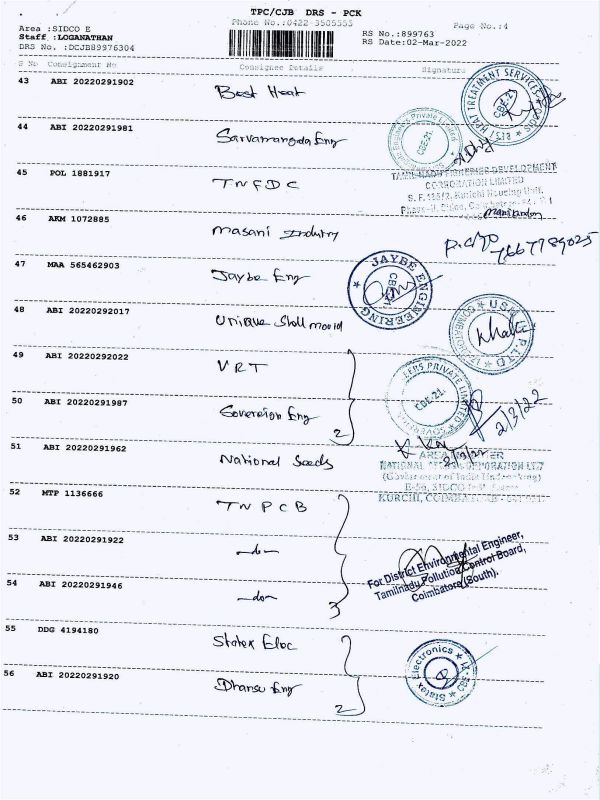 TPC/CJB DRS - PCK
Phone No.:0422-3505555
Page No.:4
Area :SIDCO E
Staff :LOGANATHAN
DRS No. :DCJB89976304
RS No.:899763
RS Date:02-Mar-2022
S No Consignment No Consignee Details Signature
43 ABI 20220291902 Best Heat
HEAT TREATMENT SERVICES
CBE-21
44 ABI 20220291981 Sarvamangda Eng
Private Limited
CBE.21.
45 POL 1881917 TNFDC
TAMIL NADU FISHERIES DEVELOPMENT
CORPORATION LIMITED
S. F. Kurichi Housing Unit,
Manikandan
46 AKM 1072885 Masani Industry
7667789025
47 MAA 565462903 Jaybe Eng
JAYBE ENGINEERING
48 ABI 20220292017 Unique Shell mould
U S M P. LTD
49 ABI 20220292022 VRT
50 ABI 20220291987 Sovereign Eng
2
PRIVATE LIMITED
CBE-21.
2/3/22
51 ABI 20220291962 National Seeds
AREA
NATIONAL CORPORATION LTD
(Government of India Undertaking)
E-56, SIDCO
KURCHI,
52 MTP 1136666 TNPCB
53 ABI 20220291922 -do-
54 ABI 20220291946 -do-
3
For District Environmental Engineer,
Tamilnadu Pollution Control Board,
Coimbatore (South).
55 DDG 4194180 Statex Elec
56 ABI 20220291920 Dhansu Eng
2
Statex Electronics